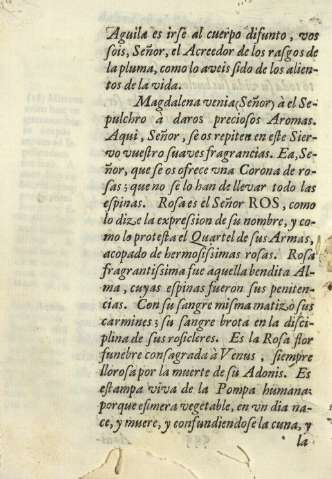 Aguila es irse al cuerpo difunto, vos
sois, Señor, el Acreedor de los rasgos de
la pluma, como lo aveis sido de los alien-
tos de la vida.
Magdalena venia (Señor) à el Se-
pulchro à daros preciosos Aromas.
Aqui, Señor, se os repiten en este Sier-
vo vuestro suaves fragrancias. Ea, Se-
ñor, que se os ofrece vna Corona de ro-
sas; que no se lo han de llevar todo las
espinas. Rosa es el Señor ROS, como
lo dize la expression de su nombre, y co-
mo lo protesta el Quartel de sus Armas,
acopado de hermosissimas rosas. Rosa
fragrantissima fue aquella bendita Al-
ma, cuyas espinas fueron sus peniten-
cias. Con su sangre misma matizò sus
carmines; su sangre brota en la disci-
plina de sus rosicleres. Es la Rosa flor
funebre consagrada à Venus, siempre
llorosa por la muerte de su Adonis. Es
estampa viva de la Pompa humana:
porque efimera vegetable, en vn dia na-
ce, y muere, y confundiendose la cuna, y
la